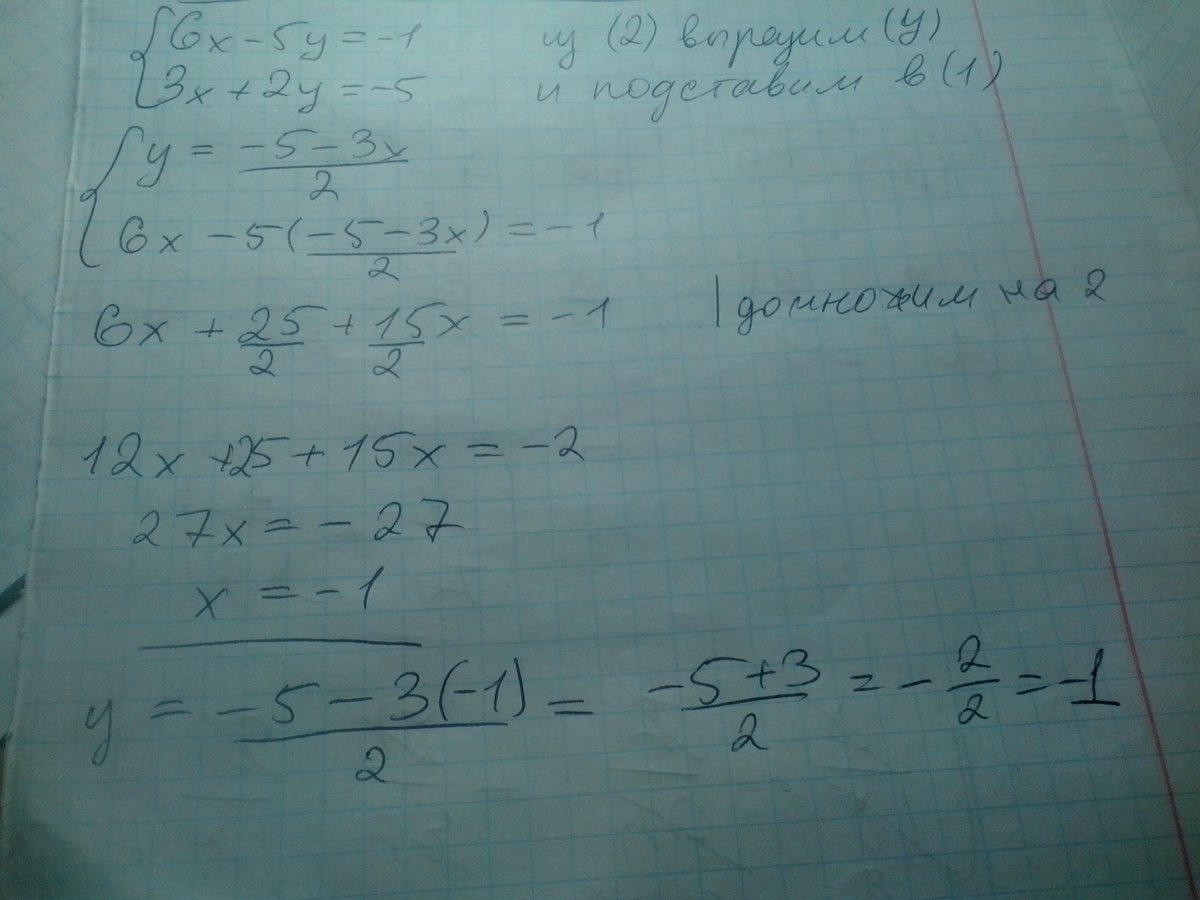 6x - 5y = -1 из (2) выразим (y)
3x + 2y = -5 и подставим в (1)
y = (-5 - 3x)/2
6x - 5((-5 - 3x)/2) = -1
6x + 25/2 + 15/2 x = -1 | домножим на 2
12x + 25 + 15x = -2
27x = -27
x = -1
y = (-5 - 3(-1))/2 = (-5 + 3)/2 = -2/2 = -1